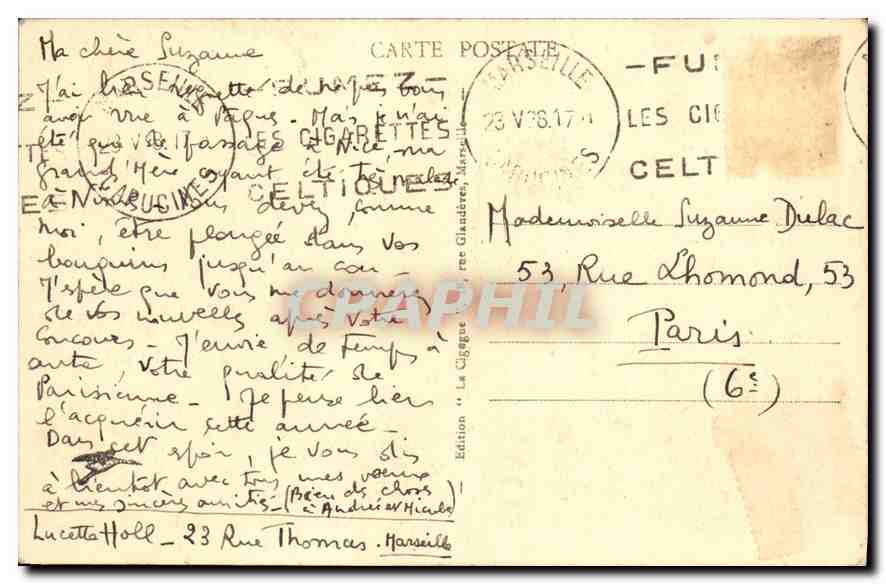 Ma chère Suzanne
J'ai bien regretté de ne pas vous
avoir vue à Pâques - Mais je n'ai
été que de passage à Nice, ma
grand'Mère ayant été très malade
à Nîmes - Vous devez, comme
moi, être plongée dans vos
bouquins jusqu'au cou -
J'espère que vous me donnerez
de vos nouvelles après votre
concours - J'envie de temps à
autre, votre qualité de
Parisienne - Je pense bien
l'acquérir cette année -
Dans cet espoir, je vous dis
à bientôt avec tous mes voeux
et mes sincères amitiés - (Bien des choses
à Andrée et Nicole)
Lucette Holl - 23 Rue Thomas - Marseille
CARTE POSTALE
MARSEILLE
23 V 38. 17
CAPUCINES
LES CIGARETTES
CELTIQUES
MARSEILLE
23 V 38. 17
CAPUCINES
- FU
LES CIG
CELT
Edition " La Cigogne " rue Glandèves, Marseille -
Mademoiselle Suzanne Dulac
53, Rue Lhomond, 53
Paris
(6e)
CPAPHIL